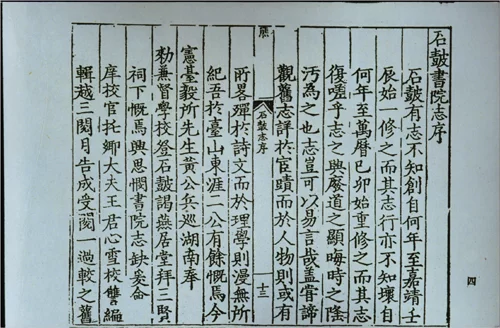 石鼓書院志序
石鼓有志不知創自何年至嘉靖壬
辰始一修之而其志行亦不知壞自
何年至萬曆已卯始重修之而其志
復嗟乎志之興廢道之顯晦時之隆
汚為之也志豈可以易言哉蓋嘗諦
觀舊志詳於官蹟而於人物則或有
石鼓志序
十三
所畧殫於詩文而於理學則漫無所
紀吾於臺山東涯二公有餘慨焉今
憲臺毅所先生黃公兵巡湖南奉
勑兼督學校登石鼓謁燕居堂拜三賢
祠下慨焉興思憫書院志缺爰侖
庠校官托鄉大夫王君心雪校讐編
輯越三閱月告成受閱一過較之舊
四